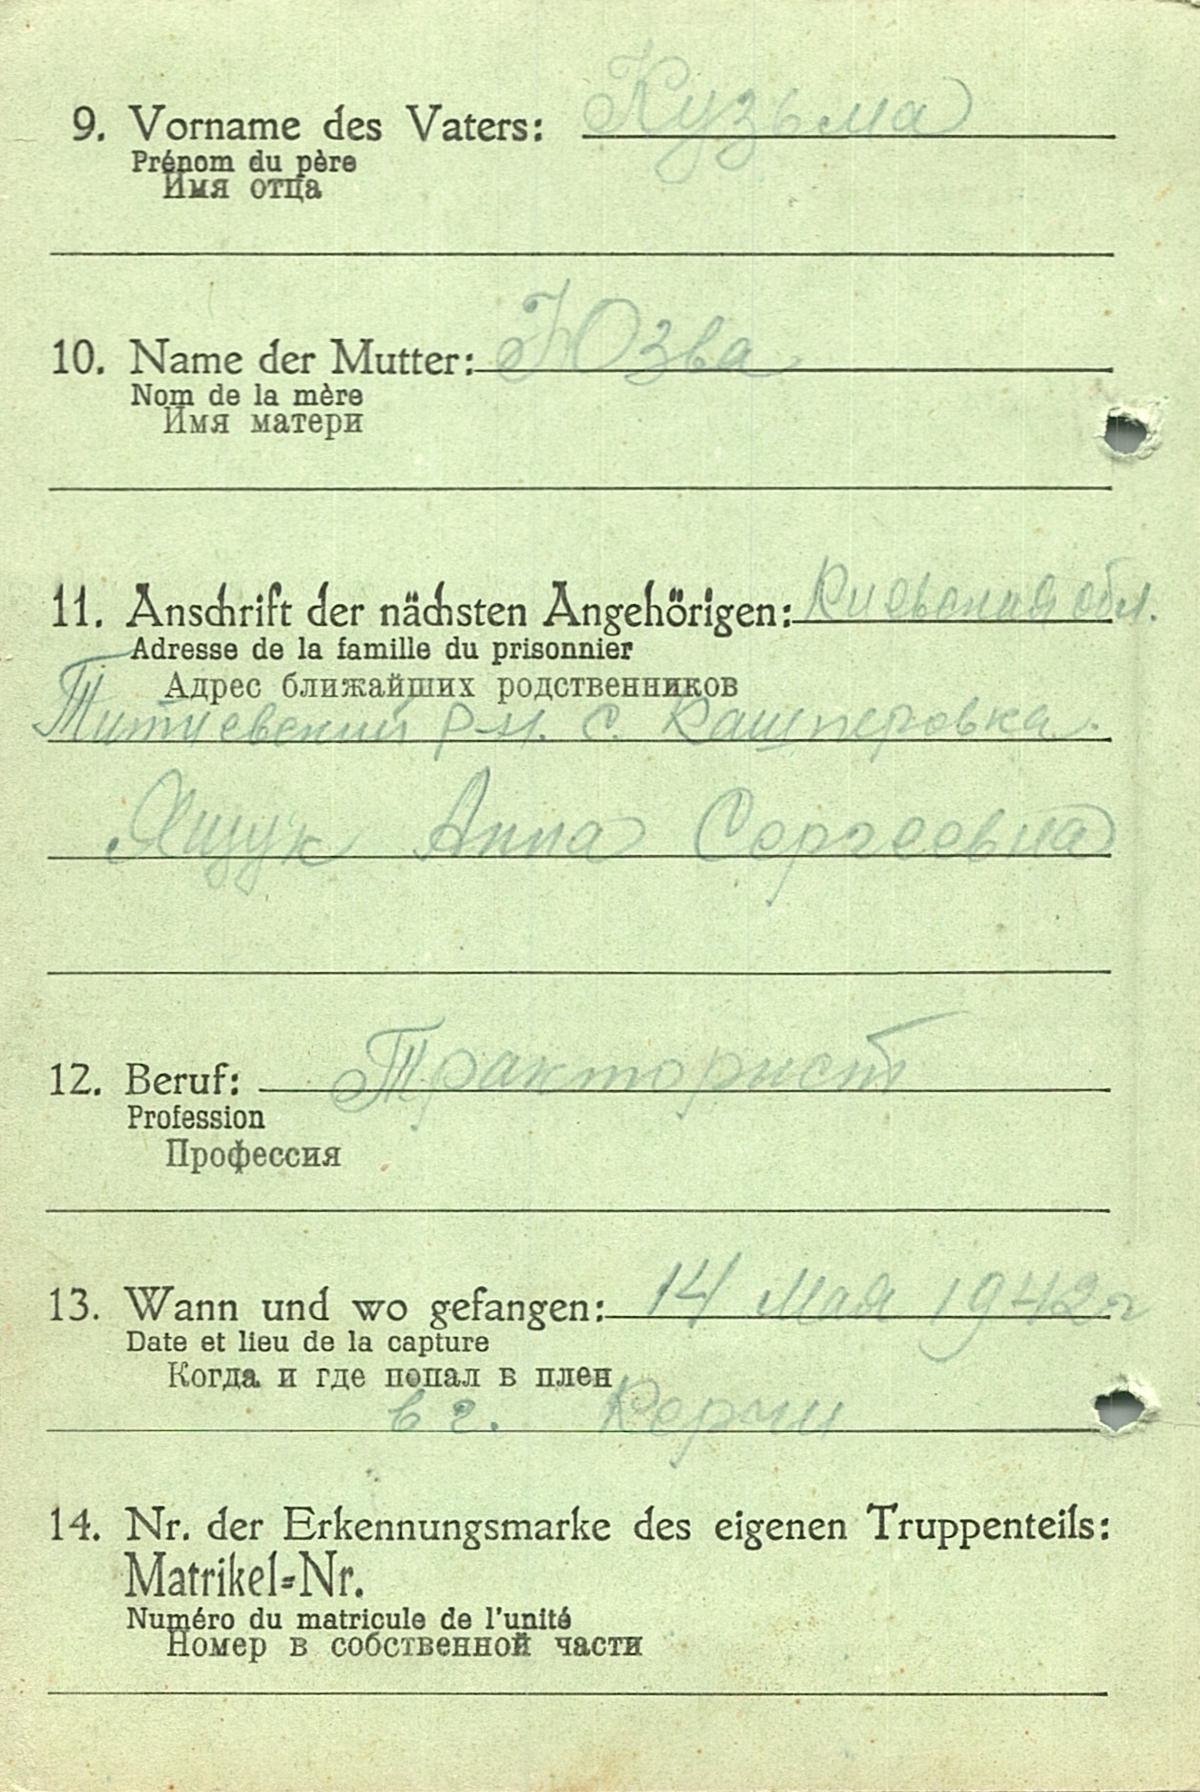 9. Vorname des Vaters: Кузьма
Prénom du père
Имя отца
10. Name der Mutter: Юзва
Nom de la mère
Имя матери
11. Anschrift der nächsten Angehörigen: Киевская обл.
Adresse de la famille du prisonnier
Адрес ближайших родственников
Титиевский р-н. с. Кашперовка.
Ящук Анна Сергеевна
12. Beruf: Тракторист
Profession
Профессия
13. Wann und wo gefangen: 14 Мая 1942 г
Date et lieu de la capture
Когда и где попал в плен
в г. Керчи
14. Nr. der Erkennungsmarke des eigenen Truppenteils:
Matrikel-Nr.
Numéro du matricule de l'unité
Номер в собственной части